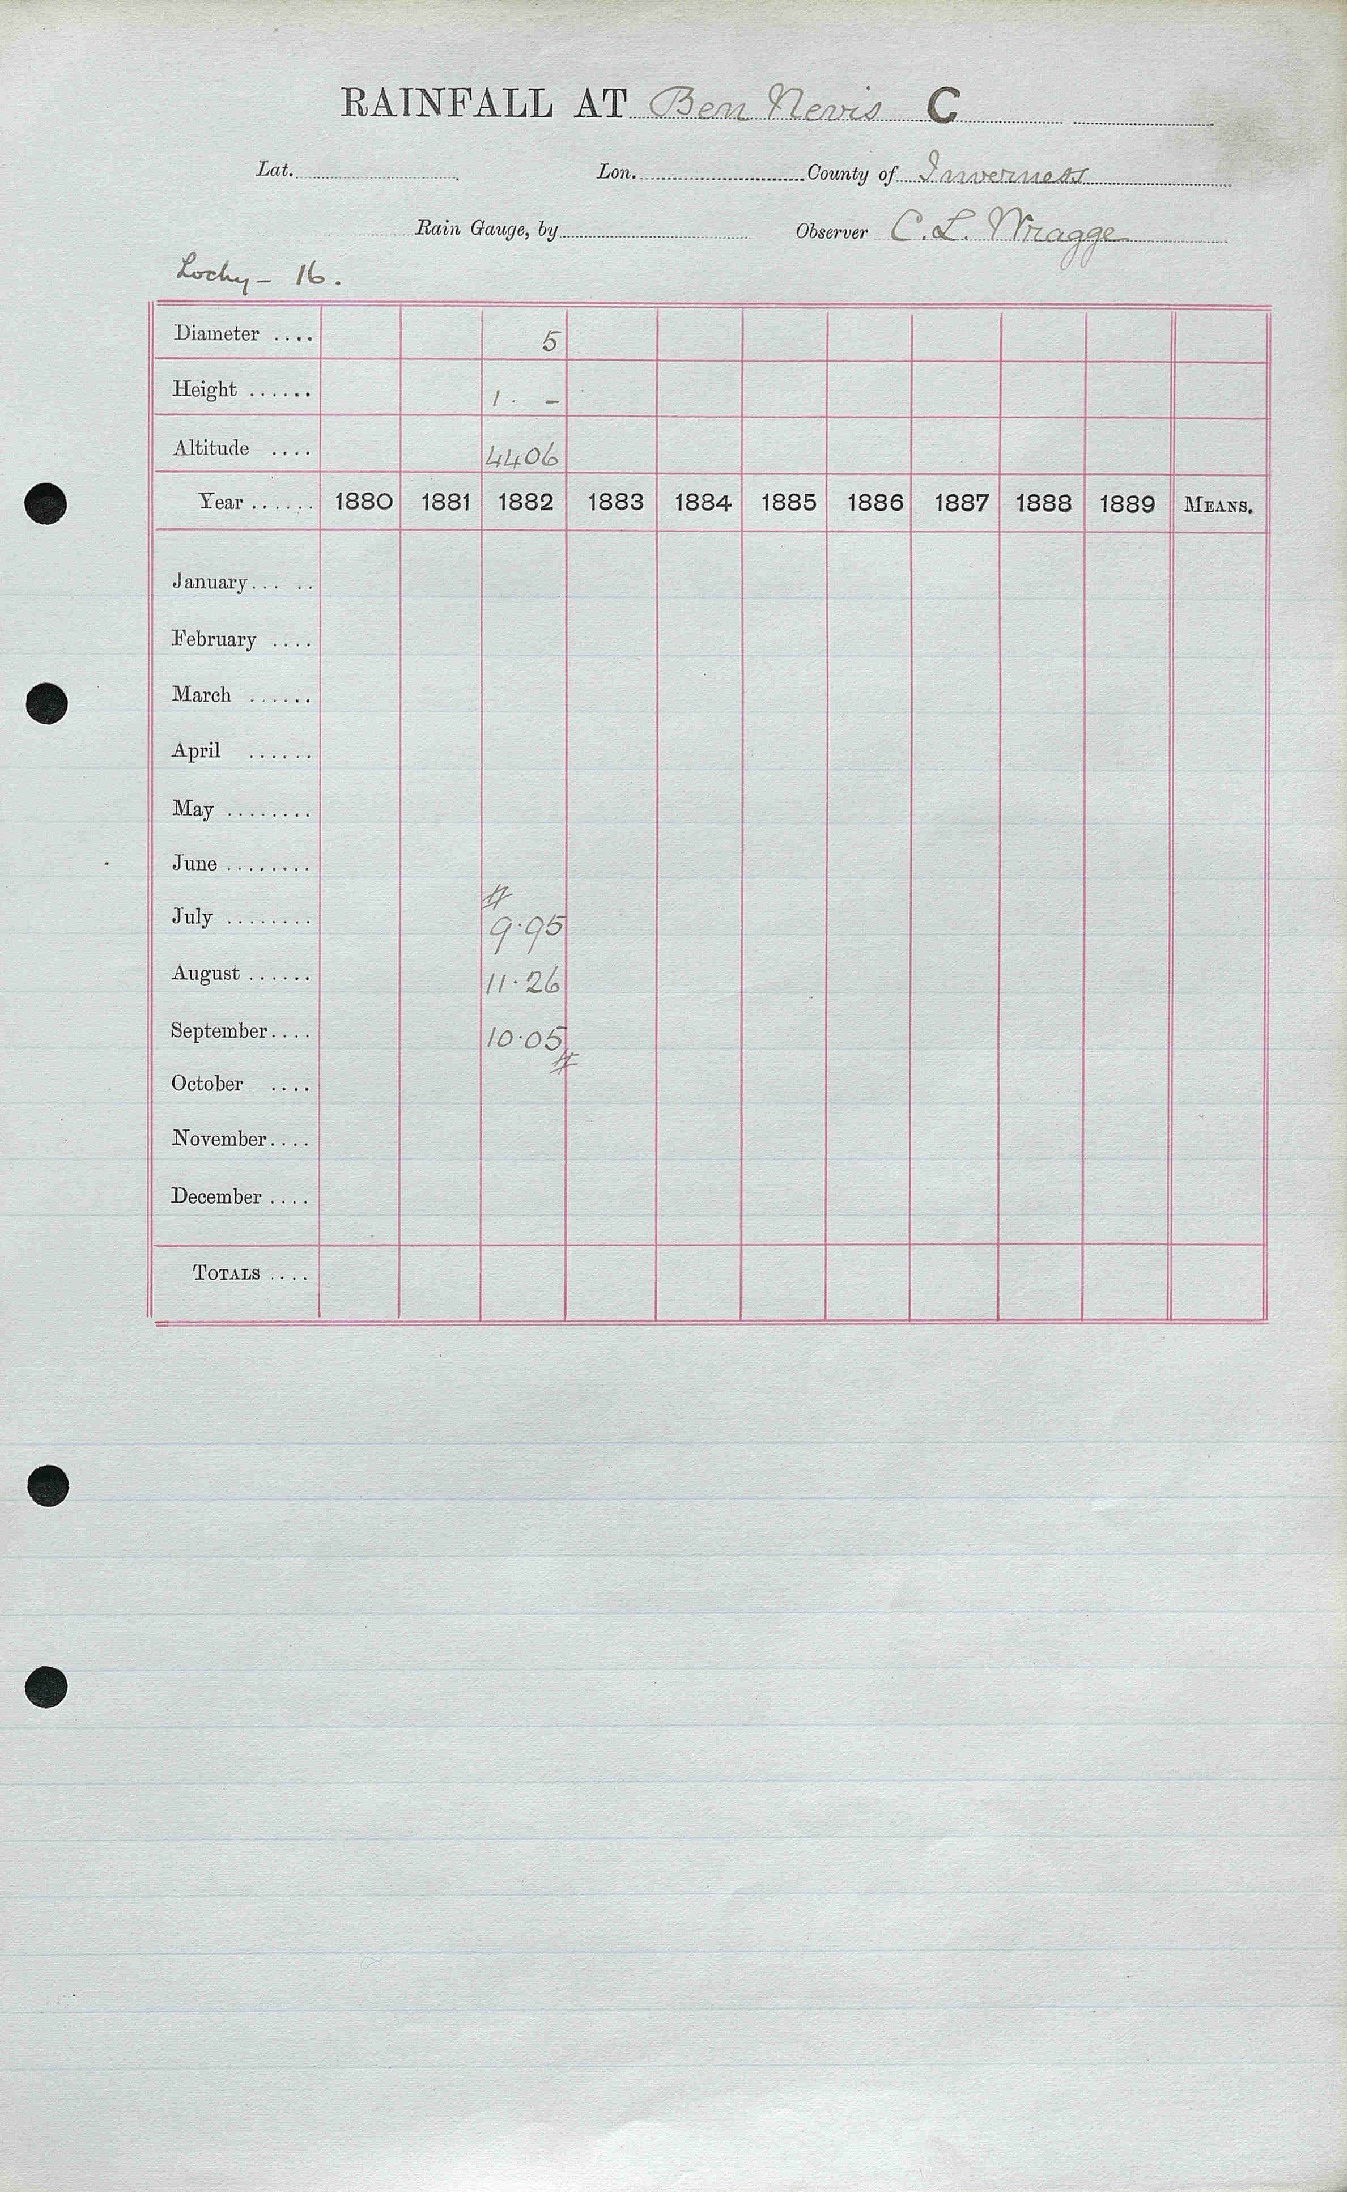 RAINFALL AT Ben Nevis C
Lat. Lon. County of Inverness
Rain Gauge, by Observer C. L. Wragge
Lochy - 16.
Diameter .... 5
Height ...... 1 . -
Altitude .... 4406
Year ...... 1880 1881 1882 1883 1884 1885 1886 1887 1888 1889 MEANS.
January... ..
February ....
March ......
April ......
May ........
June ........
#
July ........ 9.95
August ...... 11.26
September.... 10.05
#
October ....
November....
December ....
TOTALS ....